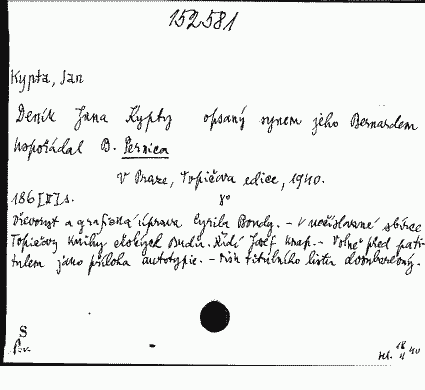 152581
Kypta, Jan
Deník Jana Kypty opsaný synem jeho Bernardem
uspořádal B. Pernica
V Praze, Topičova edice, 1940.
186 [II] s. 8°
Dřevoryt a grafická úprava Cyrila Boudy. – V nečíslované sbírce
Topičovy knihy českých osudů. Řídí Josef Knap. – Volně před pati-
tulem jako příloha autotypie. – Tisk titulního listu dvoubarevný.
S
18
4 40